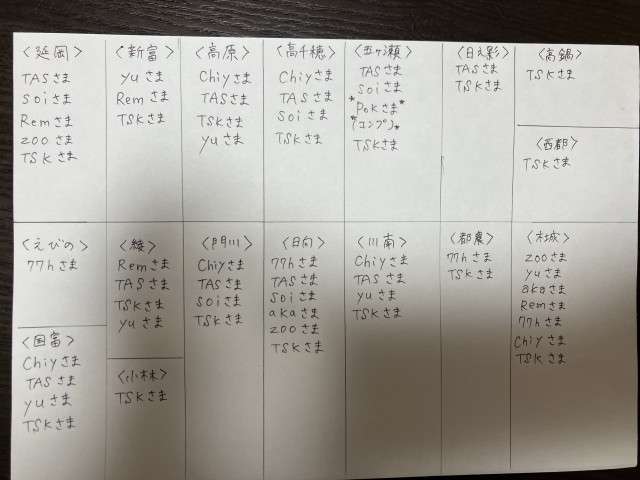 〈延岡〉
TASさま
soiさま
Remさま
zooさま
TSKさま
〈新富〉
yuさま
Remさま
TSKさま
〈高原〉
Chiyさま
TASさま
TSKさま
yuさま
〈高千穂〉
Chiyさま
TASさま
soiさま
TSKさま
〈五ヶ瀬〉
TASさま
soiさま
*Pokさま*
*(コンプ)*
TSKさま
〈日之影〉
TASさま
TSKさま
〈高鍋〉
TSKさま
〈西都〉
TSKさま
〈えびの〉
77hさま
〈国富〉
Chiyさま
TASさま
yuさま
TSKさま
〈綾〉
Remさま
TASさま
TSKさま
yuさま
〈小林〉
TSKさま
〈門川〉
Chiyさま
TASさま
soiさま
TSKさま
〈日向〉
77hさま
TASさま
soiさま
akaさま
zooさま
TSKさま
〈川南〉
Chiyさま
TASさま
yuさま
TSKさま
〈都農〉
77hさま
TSKさま
〈木城〉
zooさま
yuさま
akaさま
Remさま
77hさま
Chiyさま
TSKさま